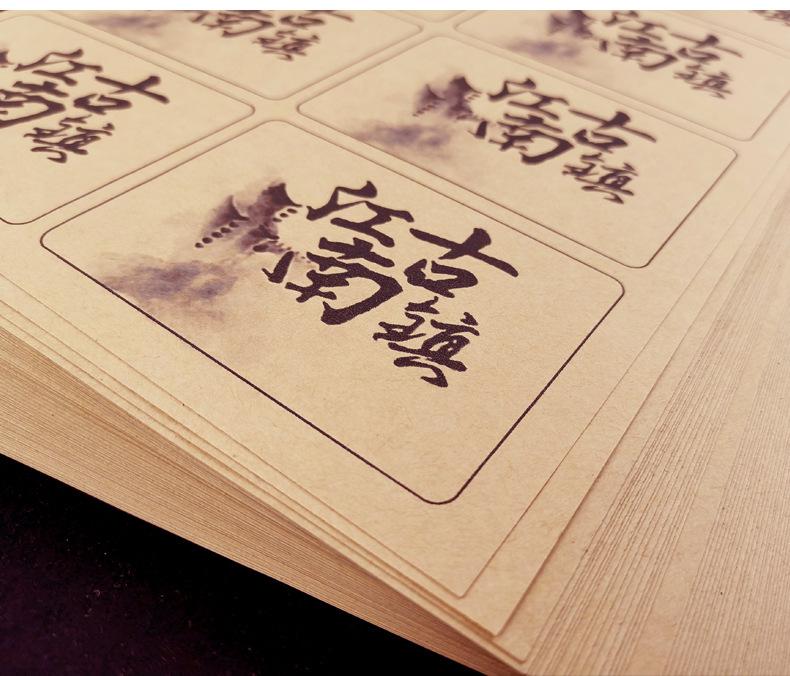 江南
古镇
江南
古镇
江南
古镇
江南
古镇